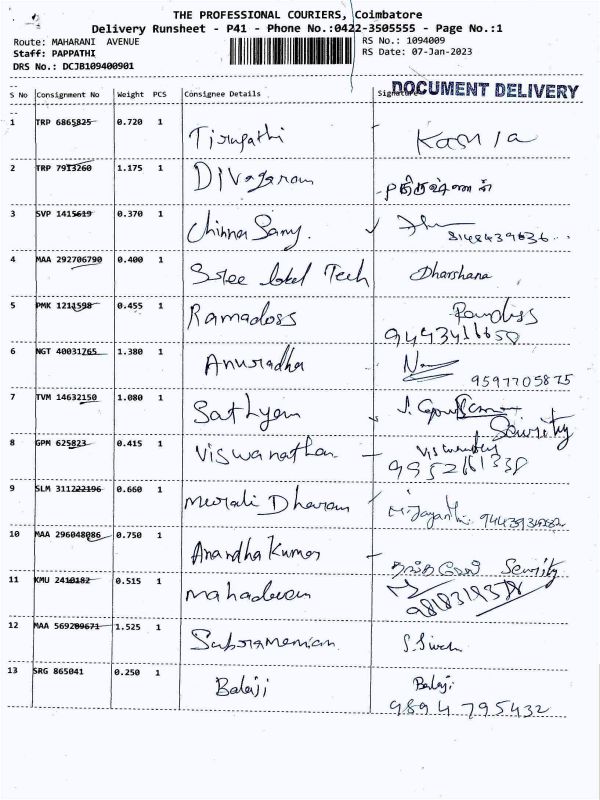 THE PROFESSIONAL COURIERS, Coimbatore
Delivery Runsheet - P41 - Phone No.:0422-3505555 - Page No.:1
Route: MAHARANI AVENUE RS No.: 1094009
Staff: PAPPATHI RS Date: 07-Jan-2023
DRS No.: DCJB109400901
DOCUMENT DELIVERY
S No Consignment No Weight PCS Consignee Details Signature
1 TRP 6865825 0.720 1 Tirupathi
2 TRP 7913260 1.175 1 Divagaram
3 SVP 1415619 0.370 1 Chinna Samy.
4 MAA 292706790 0.400 1 Sree Tech Dharshana
5 PMK 1211598 0.455 1 Ramadoss
6 NGT 40031765 1.380 1 Anuradha
9597705875
7 TVM 14632150 1.080 1 Sathyam
Security
8 GPM 625823 0.415 1 Viswanathan
9 SLM 311222196 0.660 1 Murali Dharan
10 MAA 296048086 0.750 1 Anandha Kumar
Security
11 KMU 2410182 0.515 1 Mahadevan
12 MAA 569289671 1.525 1 Subramanian
13 SRG 865041 0.250 1 Balaji Balaji
9894795432